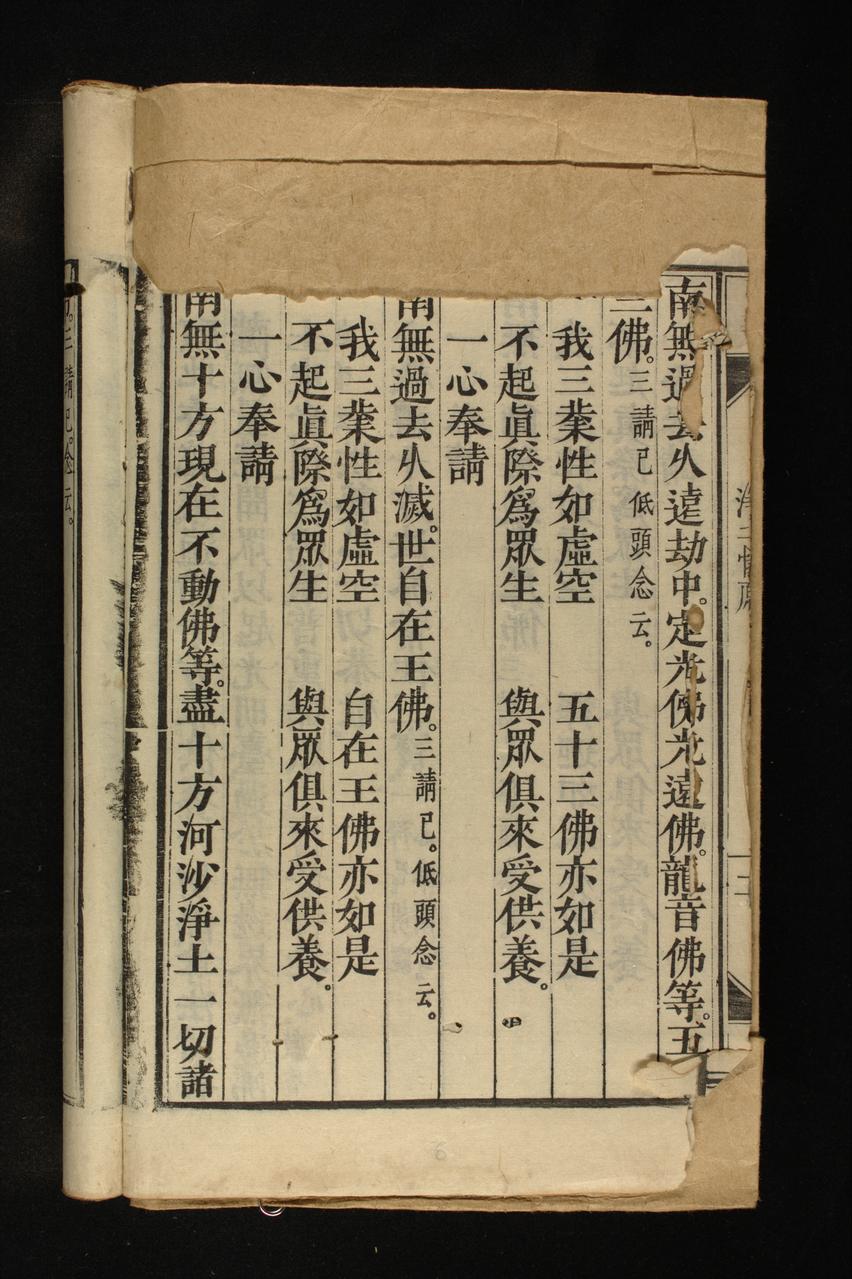 南無過去久遠劫中。定光佛光遠佛。龍音佛等。五
三佛。三請已低頭念云。
我三業性如虛空 五十三佛亦如是
不起眞際爲眾生 與眾俱來受供養。
一心奉請
南無過去久滅。世自在王佛。三請已。低頭念云。
我三業性如虛空 自在王佛亦如是
不起眞際爲眾生 與眾俱來受供養。
一心奉請
南無十方現在不動佛等。盡十方河沙淨土一切諸
三請已。念云。